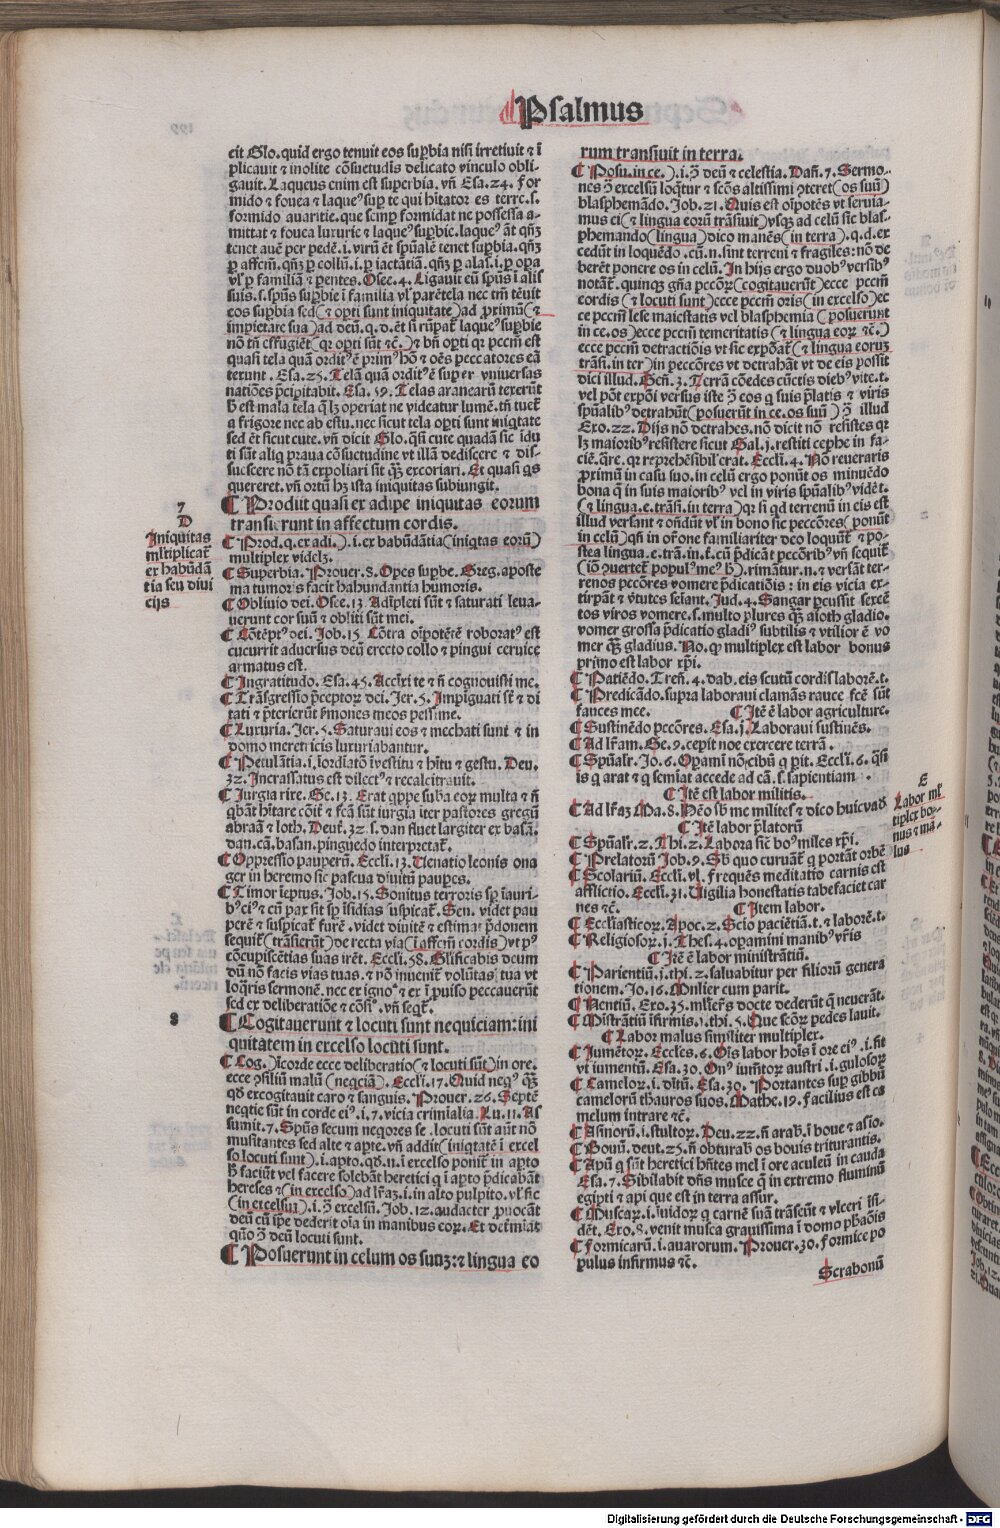 Psalmus
cit Glo. quid ergo tenuit eos suꝑbia nisi irretiuit ⁊ ī
plicauit ⁊ inolite cōsuetudīs delicato vinculo obli-
gauit. Laqueus enim est superbia. vñ Esa. 24. for
mido ⁊ fouea ⁊ laqueꝰ suꝑ te qui hītator es terre. s.
formido auaritie. que semꝑ formidat ne possessa a-
mittat ⁊ fouea luxurie ⁊ laqueꝰ suꝑbie. laqueꝰ āt
tenet auē per pedē. i. virū ēt spūalē tenet suꝑbia.
ꝑ affcm̄. ꝑ collū. i. ꝑ iactātiā. ꝑ alas. i. ꝑ oꝑa
vl̓ ꝑ familiā ⁊ ꝑentes. Osee. 4. Ligauit eū spūs ī alis
suis. s. spūs suꝑbie ī familia vl̓ parētela nec tm̄ tēuit
eos suꝑbia sed (⁊ opti sunt iniquitate) ad proximū (⁊
impietate sua) ad deū. q. d. ēt si rūpat̄ laqueꝰ suꝑbie
nō tn̄ effugiēt (qr opti sūt ⁊c̄.) ⁊ bn̄ opti qr pccm̄ est
quasi tela quā orditꝰ ē primꝰ hō ⁊ oēs peccatores eā
texunt. Esa. 25. Telā quā orditꝰ ē super vniuersas
natiōes p̄cipitabit. Esa. 59. Telas aranearū texerūt
a frigore nec ab estu. nec sicut tela opti sunt iniqtate
sed ēt sicut cute. vn̄ dicit Glo. q̄si cute quadā sic īdu
ti sūt aliq praua cōsuetudine vt illā dediscere ⁊ dis-
suescere nō tā expoliari sit excoriari. Et quasi qs
quereret. vn̄ ortū hȝ ista iniquitas subiungit.
¶ Prodiit quasi ex adipe iniquitas eorum
transierunt in affectum cordis.
¶ Prod. q. ex adi.) .i. ex habūdātia (iniqtas eorū)
multiplex videlȝ.
¶ Superbia. Prouer. 8. Opes suꝑbe. Greg. aposte
ma tumoris facit habundantia humoris.
¶ Obliuio dei. Osee. 13. Adīpleti sūt ⁊ saturati leua-
uerunt cor suū ⁊ obliti sūt mei.
¶ Cōtēptꝰ dei. Job. 15. Cōtra oīpotētē roboratꝰ est
cucurrit aduersus deū erecto collo ⁊ pingui ceruice
armatus est.
¶ Ingratitudo. Esa. 45. Accīxi te ⁊ n̄ cognouisti me.
¶ Trāsgressio p̄ceptorꝝ dei. Jer. 5. Impīguati st̄ ⁊ di
tati ⁊ p̄terierūt ẜmones meos pessime.
¶ Luxuria. Jer. 5. Saturaui eos ⁊ mechati sunt ⁊ in
domo meretricis luxuriabantur.
¶ Petulātia. i. īordīatō ī vestitu ⁊ hītu ⁊ gestu. Deu.
32. Incrassatus est dilectꝰ ⁊ recalcitrauit.
¶ Jurgia rixe. Ge. 13. Erat qppe suba eorꝝ multa ⁊ n̄
qbāt hītare cōīt̄ ⁊ fcā sūt iurgia iter pastores gregū
abraā ⁊ loth. Deut. 32. s. dan fluet largiter ex basā.
dan. cā. basan. pinguedo interpretat̄.
¶ Oppressio pauperū. Eccli. 13. Uenatio leonis ona
ger in heremo sic pascua diuitū pauꝑes.
¶ Timor īeptus. Job. 15. Sonitus terroris sꝑ ī auri-
bꝰ eiꝰ ⁊ cū pax sit sꝑ īsidias suspicat̄. Sen. videt pau
perē ⁊ suspicat̄ furē. videt diuitē ⁊ estimat p̄donem
sequit̄ (trāsierūt) de recta via (ī affcm̄ cordis) vt pꝰ
cōcupiscētias suas irēt. Eccli. 58. Glīficabis deum
dū nō facis vias tuas. ⁊ nō inuenit̄ volūtas tua vt
loqris sermonē. nec ex ignoꝰ ⁊ ex ī puiso peccauerūt
sed ex deliberatiōe ⁊ cōsīꝰ. vn̄ seqt̄.
¶ Cogitauerunt ⁊ locuti sunt nequiciam: ini
quitatem in excelso locuti sunt.
¶ Cog.) ī corde ecce deliberatio (⁊ locuti sūt) in ore.
ecce ꝯsiliū malū (neqciā). Eccli. 17. Quid neqꝰ
qd excogitauit caro ⁊ sanguis. Prouer. 26. Septē
neqtie sūt in corde eiꝰ. i. 7. vicia crimīalia. Lu. 11. As
sumit. 7. Spūs secum neqores se. locuti sūt aūt nō
musitantes sed alte ⁊ apte. vn̄ addit (iniqtatē ī excel
so locuti sunt). i. apto. qd. n. ī excelso ponit̄ in apto
faciūt vel facere solebāt heretici q ī apto p̄dicabāt
hereses ⁊ (in excelso) ad lr̄aȝ. i. in alto pulpito. vl̓ sic
(in excelsū). i. ꝯ̄ excelsū. Job. 12. audacter ꝓuocāt
deū cū ip̄e dederit oīa in manibus eorꝝ. Et determīat
qūo ꝯ̄ deū locuti sunt.
¶ Posuerunt in celum os suuȝ: ⁊ lingua eo
7
D
Iniquitas
ml̓tiplicat̄
ex habūdā
tia seu diui
cijs
8
rum transiuit in terra.
¶ Posu. in ce.) .i. ꝯ̄ deū ⁊ celestia. Dañ. 7. Sermo-
nes ꝯ̄ excelsū loqtur ⁊ scōs altissimi ꝯteret (os suū)
blasphemādo. Job. 21. Quis est oīpotēs vt seruia-
mus ei (⁊ lingua eorū trāsiuit) vsqꝫ ad celū sic blas-
phemando (lingua) dico manēs (in terra). q. d. ex
cedūt in loquēdo. cū. n. sint terreni ⁊ fragiles: nō de
berēt ponere os in celū. In hijs ergo duobꝰ versibꝰ
notāt̄. quinqꝫ gn̄a pccōꝝ (cogitauerūt) ecce pccm̄
cordis (⁊ locuti sunt) ecce pccm̄ oris (in excelso) ec
ce pccm̄ lese maiestatis vel blasphemia (posuerunt
in ce. os) ecce pccm̄ temeritatis (⁊ lingua eorꝝ ⁊c̄.)
ecce pccm̄ detractiōis vt sic expōat̄ (⁊ lingua eoruȝ
trāsi. in ter) in peccōres vt detrahāt vt de eis possit
dici illud. Gen̄. 3. Terrā cōedes cūctis diebꝰ vite. t.
vel pōt expōi versus iste ꝯ̄ eos q suis p̄latis ⁊ viris
spūalibꝰ detrahūt (posuerūt in ce. os suū) ꝯ̄ illud
Exo. 22. Dijs nō detrahes. nō dicit nō resistes qr
lȝ maioribꝰ resistere sicut Gal. j. restiti cephe in fa-
ciē. qre. qr reprehēsibilꝰ erat. Eccli. 4. Nō reueraris
proximū in casu suo. in celū ergo ponūt os minuēdo
bona q in suis maioribꝰ vel in viris spūalibꝰ vidēt.
(⁊ lingua. e. trāsi. in terra) qr si qd terrenū in eis est
illud versant ⁊ oñdūt vl̓ in bono sic peccōres (ponūt
in celū) qn̄ in or̄one familiariter deo loquūt̄ ⁊ po-
stea lingua. e. trā. in. t. cū p̄dicāt peccōribꝰ vn̄ sequit̄
(iō ꝯuertet̄ populꝰ meꝰ h̄). rimātur. n. ⁊ versāt ter-
renos peccōres vomere p̄dicatiōis: in eis vicia ex-
tirpāt ⁊ v̓tutes selant. Jud. 4. Sangar ꝑcussit sexcē
tos viros vomere. s. multo plures aioth gladio.
vomer grossa p̄dicatio gladiꝰ subtilis ⁊ vtilior ē vo
mer gladius. No. ꝙ multiplex est labor bonus
primo est labor xp̄i.
¶ Patiēdo. Tren̄. 4. dab. eis scutū cordis laborē. t.
¶ Predicādo. supra laboraui clamās rauce fcē sūt
fauces mee. ¶ Itē ē labor agriculture.
¶ Sustinēdo pccōres. Esa. j. Laboraui sustinēs.
¶ Ad lr̄am. Ge. 9. cepit noe exercere terrā.
¶ Spūalr̄. Jo. 6. Opamī nō cibū q ꝑit. Eccli. 6. q̄si
is q arat ⁊ q semīat accede ad eā. s. sapientiam.
¶ Itē est labor militis.
¶ Ad lr̄aȝ Ma. 8. Hēo sb me milites ⁊ dico huic vad
¶ Itē labor p̄latorū
¶ Spūalr̄. 2. Thi. 2. Labora sic boꝰ miles xp̄i.
¶ Prelatorū Job. 9. Sb quo curuāt̄ q portāt orbē
¶ Scolariū. Eccli. vl. frequēs meditatio carnis est
afflictio. Eccli. 31. Uigilia honestatis tabefaciet car
nes ⁊c̄. ¶ Item labor.
¶ Ecclīasticorꝝ. Apoc. 2. Scio paciētiā. t. ⁊ laborē. t.
¶ Religiosorꝝ. j. Thes. 4. opamini manibꝰ vr̄is
¶ Itē ē labor ministrātiū.
¶ Parientiū. j. thi. 2. saluabitur per filiorū genera
tionem. Jo. 16. Mulier cum parit.
¶ Nentiū. Exo. 35. ml̓ieres docte dederūt q neuerāt.
¶ Mīstrātiū īfirmis. 1. thi. 5. Que scōꝝ pedes lauit.
¶ Labor malus similiter multiplex.
¶ Jumētoꝝ. Eccles. 6. Oīs labor hoīs ī ore eiꝰ. i. sit
vt iumentū. Esa. 30. Onꝰ iumētorꝝ austri. i. gulosorꝝ
¶ Camelorꝝ. i. diuitū. Esa. 30. Portantes suꝑ gibbū
camelorū thauros suos. Mathe. 19. facilius est ca
melum intrare ⁊c̄.
¶ Asinorū. i. stultorꝝ. Deu. 22. n̄ arab. ī boue ⁊ asio.
¶ Bouū. deut. 25. n̄ obturab os bouis triturantis.
¶ Apū q sūt heretici hn̄tes mel ī ore aculeū in cauda
Esa. 7. Sibilabit dn̄s musce q in extremo fluminū
egipti ⁊ api que est in terra assur.
¶ Muscarꝝ. i. īuidorꝝ q carnē suā trāseūt ⁊ vlceri īsi-
dēt. Exo. 8. venit musca grauissima ī domo pharaōis
¶ Formicarū. i. auarorum. Prouer. 30. formice po
pulus infirmus ⁊c̄.
Scrabonū
E
Labor ml̓
tiplex bo-
nus ⁊ ma-
lus
Digitalisierung gefördert durch die Deutsche Forschungsgemeinschaft - DFG